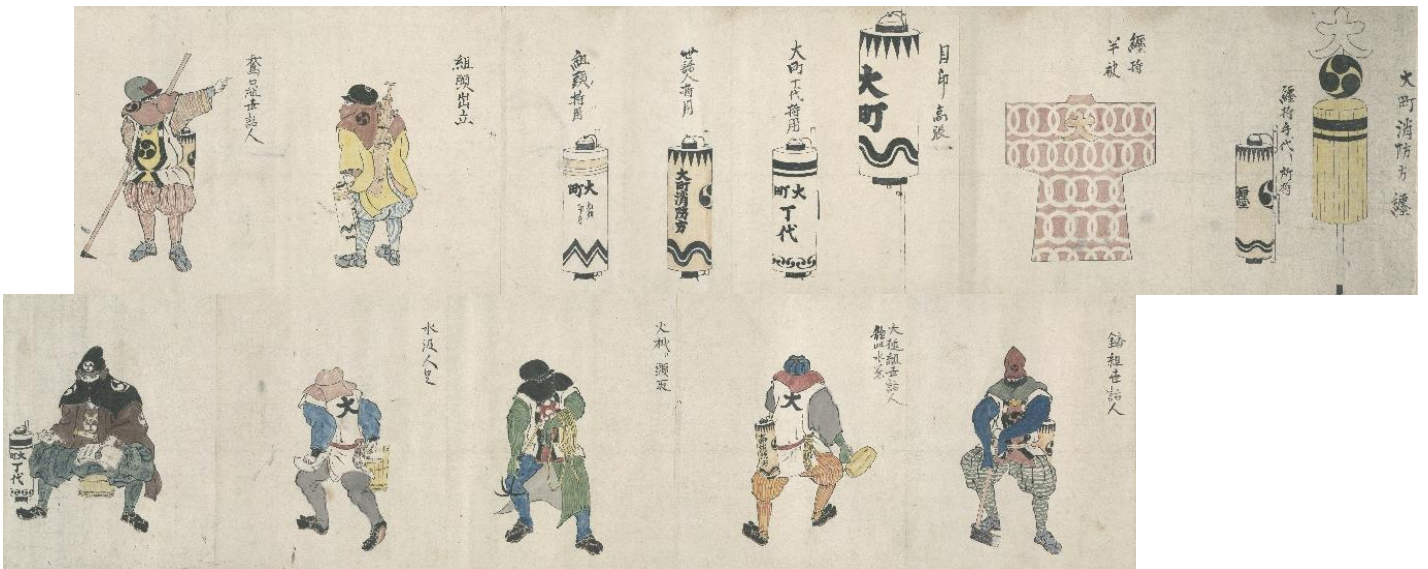 大町消防方纏
大
纏持手代り所持
纏
纏持
半被
大
目印高張
大町
大町丁代持用
大町
丁代
世話人持用
大町消防方
組頭持用
大町
組頭出立
鳶口組世話人
組世話人
大槌組世話人
龍吐水兼
大
頭取
水汲人足
大
大町
丁代